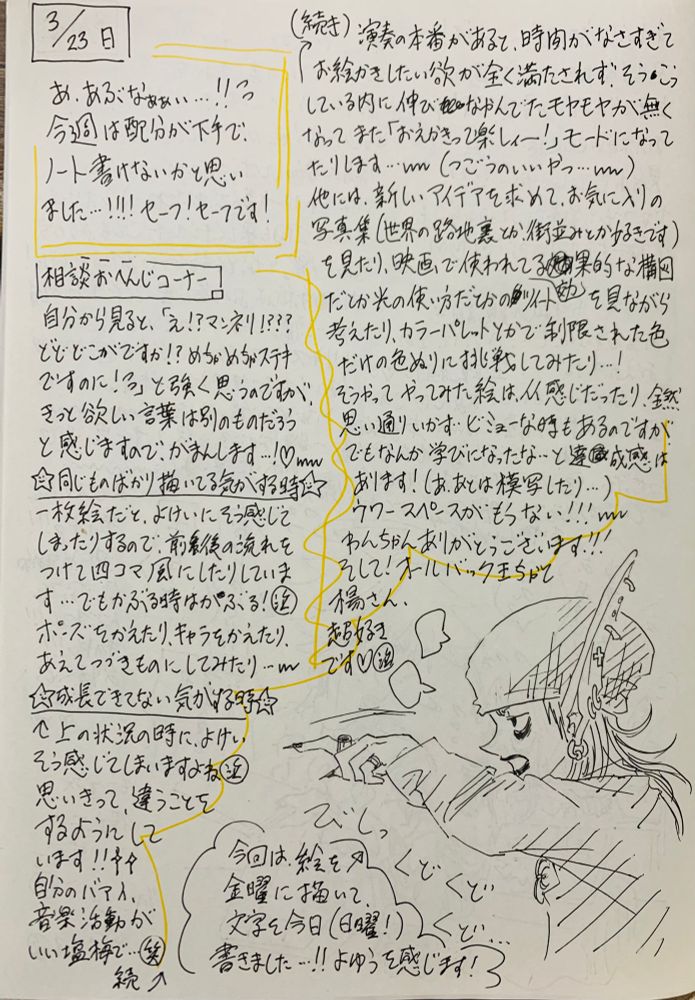 3/23日
あ、あぶなぁぁぃ…!!
今週は配分が下手で、
ノート書けないかと思い
ました…!!!! セーフ!セーフです!
相談おへんじコーナー
自分から見ると、「え!?マンネリ!???
どどどこがですか!?めちゃめちゃステキ
ですのに!?」と強く思うのですが、
きっと欲しい言葉は別のものだろう
と感じますので、がまんします…!♡
☆同じものばかり描いてる気がする時☆
一枚絵だと、よけいにそう感じて
しまったりするので、前後の流れを
つけて四コマ風にしたりしていま
す…でもかぶる時はかぶる!(泣)
ポーズをかえたり、キャラをかえたり、
あえてつづきものにしてみたり…
☆成長できてない気がする時☆
↑上の状況の時に、よけい
そう感じてしまいますよね(泣)
思いきって、違うことを
するようにして
います!!
自分のバアイ、
音楽活動が
いい塩梅で…(笑)
続↗
(続き)演奏の本番があると、時間がなさすぎて
お絵かきしたい欲が全く満たされず、そうこう
している内に伸びなやんでたモヤモヤが無く
なってまた「おえかきって楽しィー!」モードになって
たりします…(つごうのいいやつ…)
他には、新しいアイデアを求めて、お気に入りの
写真集(世界の路地裏とか、街並みとかゆるきです)
を見たり、映画で使われてる効果的な構図
だとか光の使い方だとかのツイートを見ながら
考えたり、カラーパレットとかで制限された色
だけの色ぬりに挑戦してみたり…!
そうやってやってみた絵は、イイ感じだったり、全然
思い通りいかず…ビミョーな時もあるのですが
でもなんか学びになったな…と達成感は
あります!(あ、あとは模写したり…)
ウワースペースがもうない!!!
わんちゃんありがとうございます!!!
そして!オールバック王ちゃと
楊さん、
超好き
です♡(泣)
びしっ
くどくど
くど…
今回は、絵を↗
金曜に描いて、
文字を今日(日曜!)
書きました…!! よゆうを感じます!